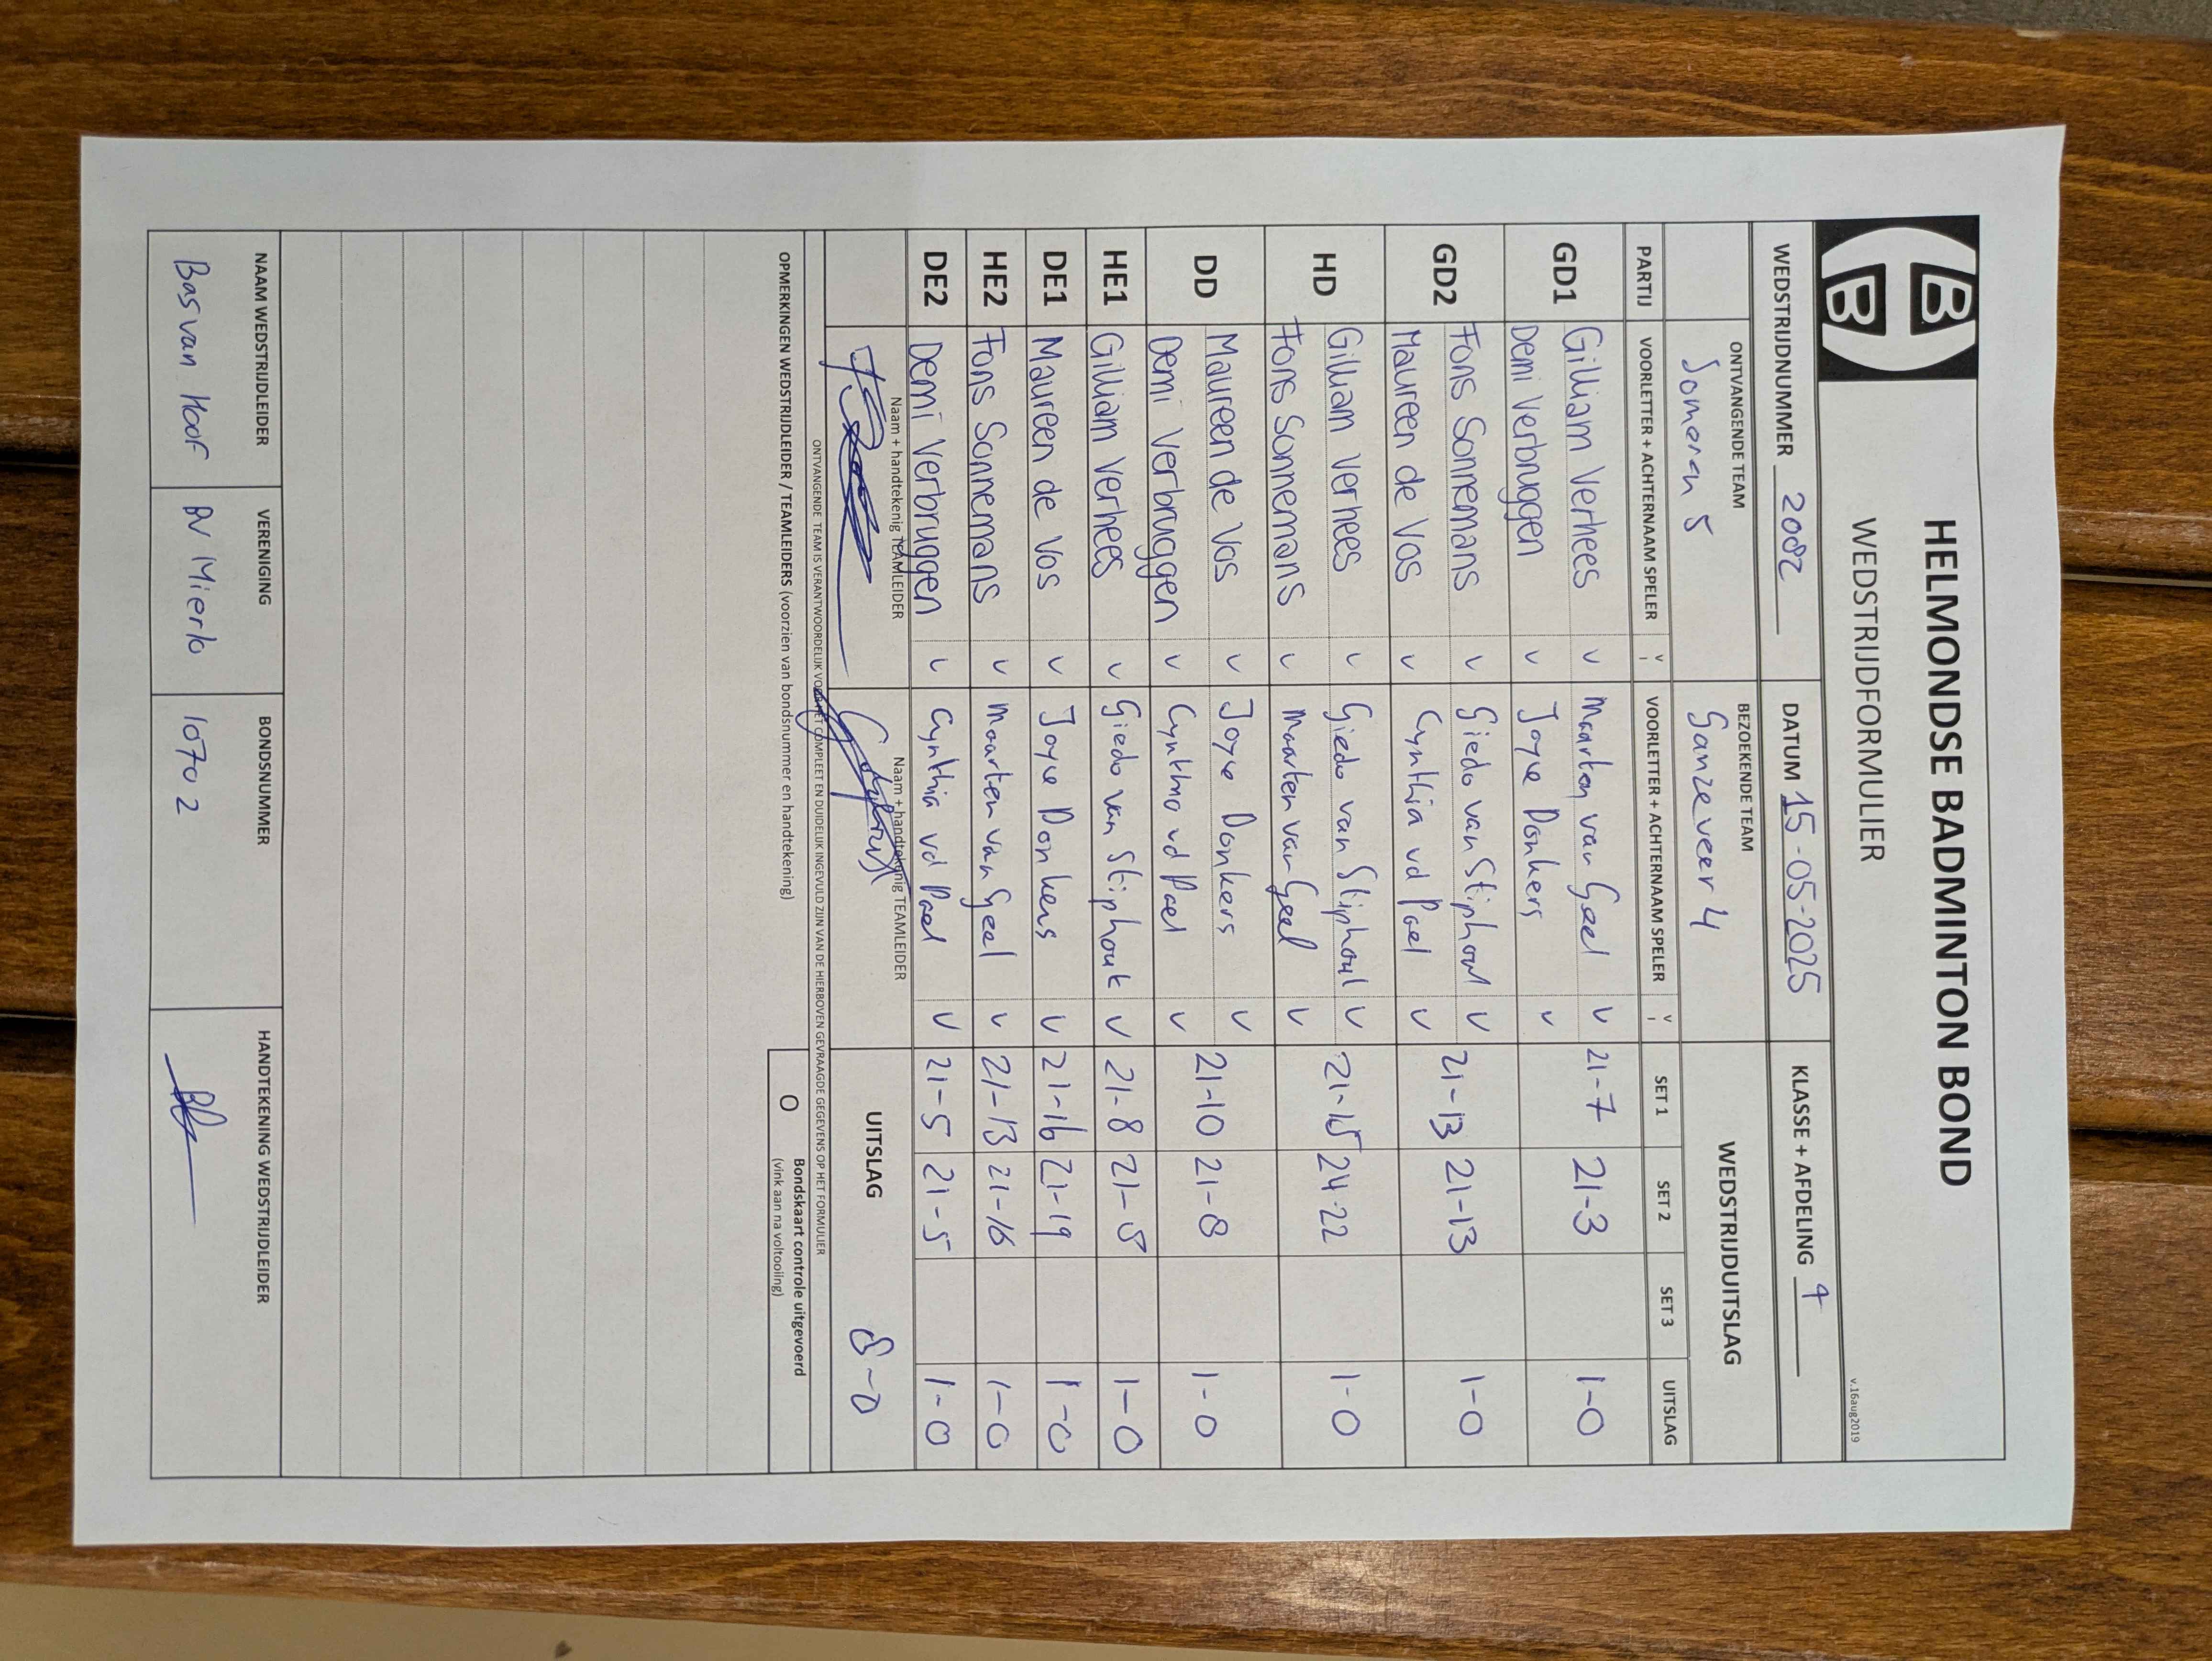 HELMONDSE BADMINTON BOND
WEDSTRIJDFORMULIER
v.16aug2019
WEDSTRIJDNUMMER 2002 DATUM 15-05-2025 KLASSE + AFDELING 4
ONTVANGENDE TEAM BEZOEKENDE TEAM WEDSTRIJDUITSLAG
Someren 5 Ganzeveer 4
PARTIJ VOORLETTER + ACHTERNAAM SPELER V VOORLETTER + ACHTERNAAM SPELER V SET 1 SET 2 SET 3 UITSLAG
GD1 Gilliam Verhees v Maarten van Geel v 21-7 21-3 1-0
Demi Verbruggen v Joyce Donkers v
GD2 Fons Sonnemans v Giedo van Stiphout v 21-13 21-13 1-0
Maureen de Vos v Cynthia vd Poel v
HD Gilliam Verhees v Giedo van Stiphout v 21-15 24-22 1-0
Fons Sonnemans v Maarten van Geel v
DD Maureen de Vos v Joyce Donkers v 21-10 21-8 1-0
Demi Verbruggen v Cynthia vd Poel v
HE1 Gilliam Verhees v Giedo van Stiphout v 21-8 21-8 1-0
DE1 Maureen de Vos v Joyce Donkers v 21-16 21-19 1-0
HE2 Fons Sonnemans v Maarten van Geel v 21-13 21-16 1-0
DE2 Demi Verbruggen v Cynthia vd Poel v 21-5 21-5 1-0
Naam + handtekenig TEAMLEIDER Naam + handtekenig TEAMLEIDER UITSLAG 8-0
ONTVANGENDE TEAM IS VERANTWOORDELIJK VOOR HET COMPLEET EN DUIDELIJK INGEVULD ZIJN VAN DE HIERBOVEN GEVRAAGDE GEGEVENS OP HET FORMULIER
OPMERKINGEN WEDSTRIJDLEIDER / TEAMLEIDERS (voorzien van bondsnummer en handtekening) O Bondskaart controle uitgevoerd
(vink aan na voltooiing)
NAAM WEDSTRIJDLEIDER VERENIGING BONDSNUMMER HANDTEKENING WEDSTRIJDLEIDER
Bas van Hoof BV Mierlo 10702